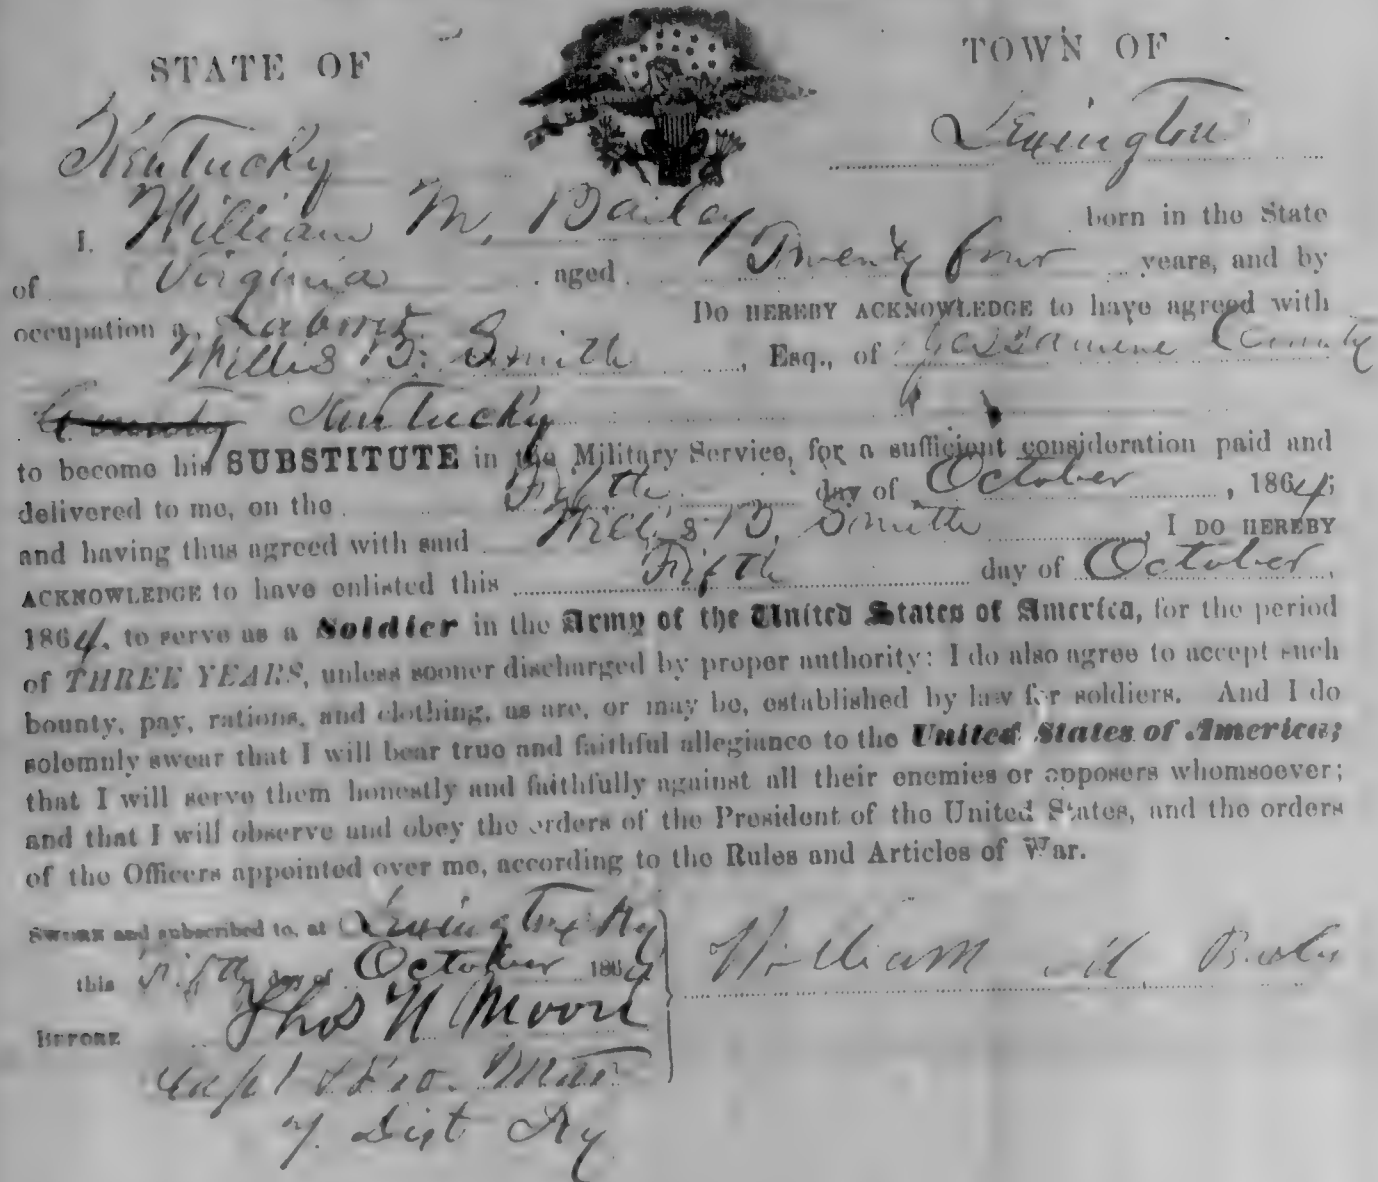 STATE OF
TOWN OF
Kentucky
Lexington
I. William M. Bailey born in the State
of Virginia aged Twenty four years, and by
occupation a Laborer Do HEREBY ACKNOWLEDGE to have agreed with
Willis B. Smith, Esq., of Jessamine County
Kentucky
to become his SUBSTITUTE in the Military Service, for a sufficient consideration paid and
delivered to me, on the Fifth day of October, 1864;
and having thus agreed with said Willis B. Smith, I DO HEREBY
ACKNOWLEDGE to have enlisted this Fifth day of October,
1864, to serve as a Soldier in the Army of the United States of America, for the period
of THREE YEARS, unless sooner discharged by proper authority: I do also agree to accept such
bounty, pay, rations, and clothing, as are, or may be, established by law for soldiers. And I do
solemnly swear that I will bear true and faithful allegiance to the United States of America;
that I will serve them honestly and faithfully against all their enemies or opposers whomsoever;
and that I will observe and obey the orders of the President of the United States, and the orders
of the Officers appointed over me, according to the Rules and Articles of War.
SWORN and subscribed to, at Lexington Ky
this Fifth day of October 1864
William M
BEFORE Thos H Moore
Capt & Pro. Mar
7 Dist Ky